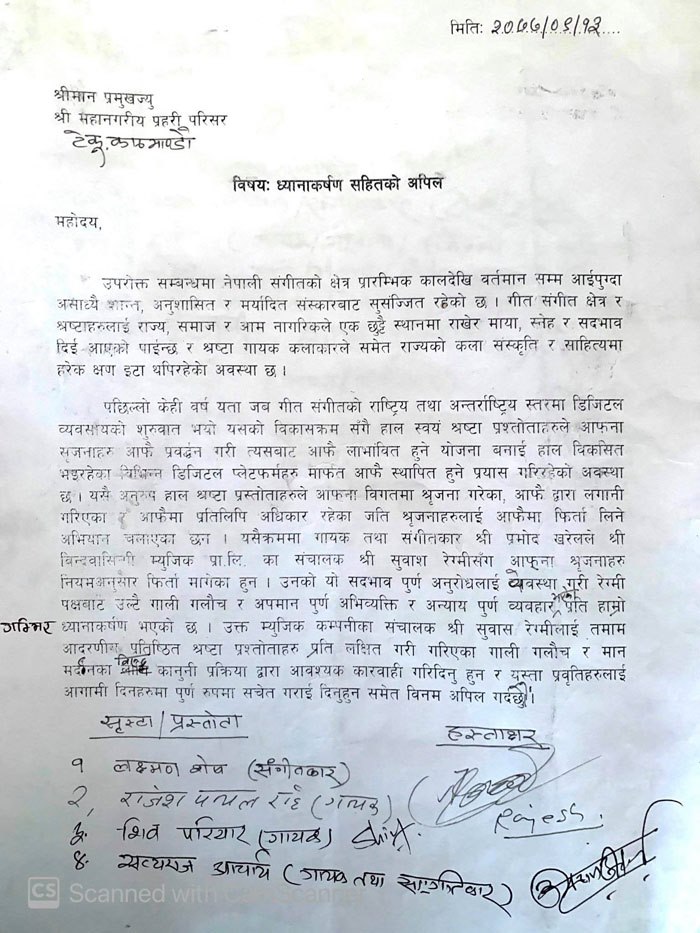 मितिः २०७७/०९/१२
श्रीमान प्रमुखज्यु
श्री महानगरीय प्रहरी परिसर
टेकू, काठमाण्डौ
विषयः ध्यानाकर्षण सहितको अपिल
महोदय,
उपरोक्त सम्बन्धमा नेपाली संगीतको क्षेत्र प्रारम्भिक कालदेखि वर्तमान सम्म आईपुग्दा
असाध्यै शान्त, अनुशासित र मर्यादित संस्कारबाट सुसंज्जित रहेको छ । गीत संगीत क्षेत्र र
श्रष्टाहरुलाई राज्य, समाज र आम नागरिकले एक छुट्टै स्थानमा राखेर माया, स्नेह र सदभाव
दिई आएको पाईन्छ र श्रष्टा गायक कलाकारले समेत राज्यको कला संस्कृति र साहित्यमा
हरेक क्षण इटा थपिरहेको अवस्था छ ।
पछिल्लो केही वर्ष यता जब गीत संगीतको राष्ट्रिय तथा अन्तर्राष्ट्रिय स्तरमा डिजिटल
व्यवसायको शुरुवात भयो यसको विकासक्रम सँगै हाल स्वयं श्रष्टा प्रश्तोताहरुले आफना
सृजनाहरु आफै प्रवर्द्धन गरी त्यसबाट आफै लाभावित हुने योजना बनाई हाल विकसित
भइरहेका विभिन्न डिजिटल प्लेटफर्महरु मार्फत आफै स्थापित हुने प्रयास गरिरहेको अवस्था
छ । यसै अनुरुप हाल श्रष्टा प्रस्तोताहरुले आफना विगतमा श्रृजना गरेका, आफै द्वारा लगानी
गरिएका र आफैमा प्रतिलिपि अधिकार रहेका जति श्रृजनाहरुलाई आफैमा फिर्ता लिने
अभियान चलाएका छन । यसैक्रममा गायक तथा संगीतकार श्री प्रमोद खरेलले श्री
बिन्दवासिनी म्युजिक प्रा.लि. का संचालक श्री सुवाश रेग्मीसँग आफूना श्रृजनाहरु
नियमअनुसार फिर्ता मागेका हुन । उनको यो सदभाव पुर्ण अनुरोधलाई वेवस्ता गरी रेग्मी
पक्षबाट उल्टै गाली गलौच र अपमान पुर्ण अभिव्यक्ति र अन्याय पुर्ण व्यवहार भएको प्रति हाम्रो
गम्भिर ध्यानाकर्षण भएको छ । उक्त म्युजिक कम्पनीका संचालक श्री सुवास रेग्मीलाई तमाम
आदरणीय प्रतिष्ठित श्रष्टा प्रश्तोताहरु प्रति लक्षित गरी गरिएका गाली गलौच र मान
मर्दनका विरुद्ध कानुनी प्रक्रिया द्वारा आवश्यक कारवाही गरिदिनु हुन र यस्ता प्रवृतिहरुलाई
आगामी दिनहरुमा पुर्ण रुपमा सचेत गराई दिनुहुन समेत विनम अपिल गर्दछौं ।
सृस्टा/प्रस्तोता हस्ताक्षर
१ लक्ष्मण शेष (संगीतकार)
२, राजेश पायल राई (गायक) Rajesh
३. शिव परियार (गायक) Shiva
४. सत्यराज आचार्य (गायक तथा संगीतकार)
CS Scanned with CamScanner